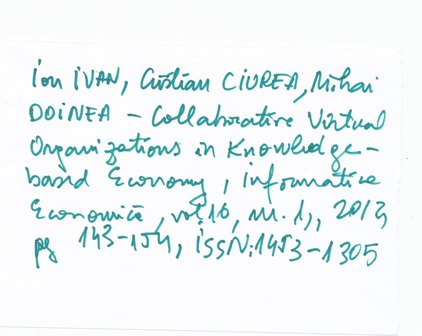 Ion IVAN, Cristian CIUREA, Mihai
DOINEA – Collaborative Virtual
Organizations in Knowledge-
based Economy, Informatica
Economică, vol. 16, nr. 1, 2012,
pg 143-154, ISSN: 1453-1305